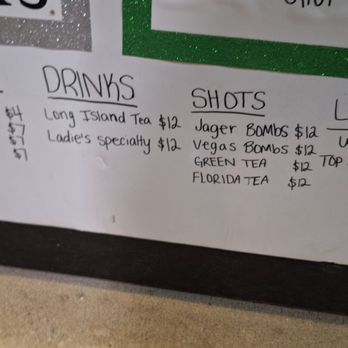 DRINKS
Long Island Tea $12
Ladie's Specialty $12
SHOTS
Jager Bombs $12
Vegas Bombs $12
GREEN TEA $12
FLORIDA TEA $12
$4
L
TOP